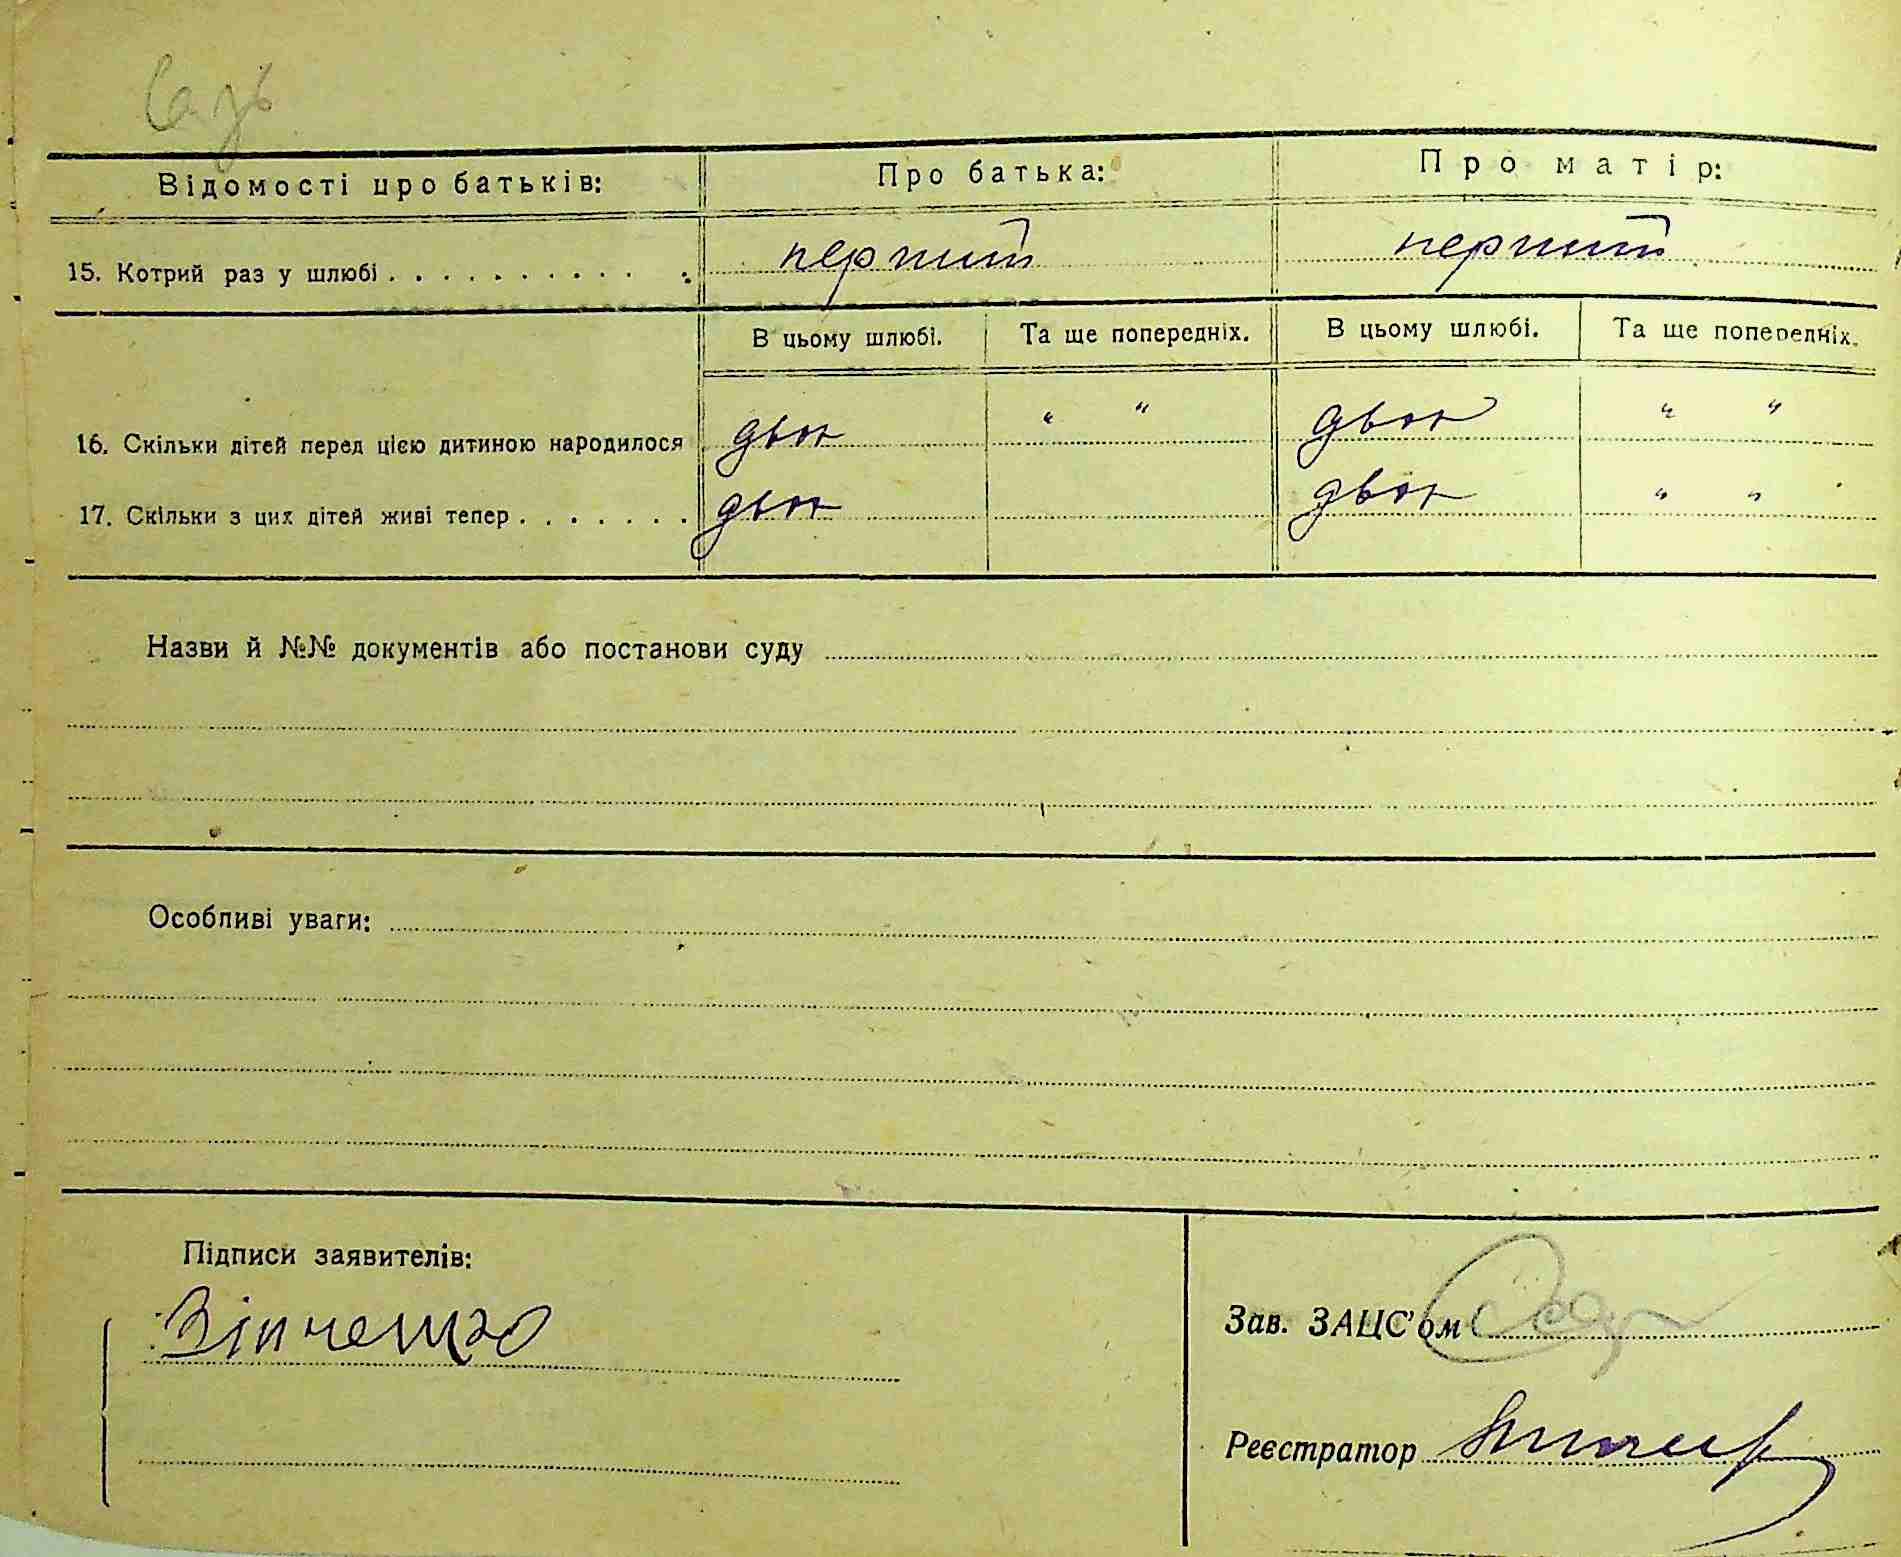 Відомості про батьків: Про батька: Про матір:
15. Котрий раз у шлюбі . . . . . . . . . . . перший перший
В цьому шлюбі. Та ще попередніх. В цьому шлюбі. Та ще попередніх.
16. Скільки дітей перед цією дитиною народилося двоє " " двоє " "
17. Скільки з цих дітей живі тепер . . . . . . . двоє двоє " "
Назви й №№ документів або постанови суду
Особливі уваги:
Підписи заявителів:
Зав. ЗАЦС'ом
Реєстратор